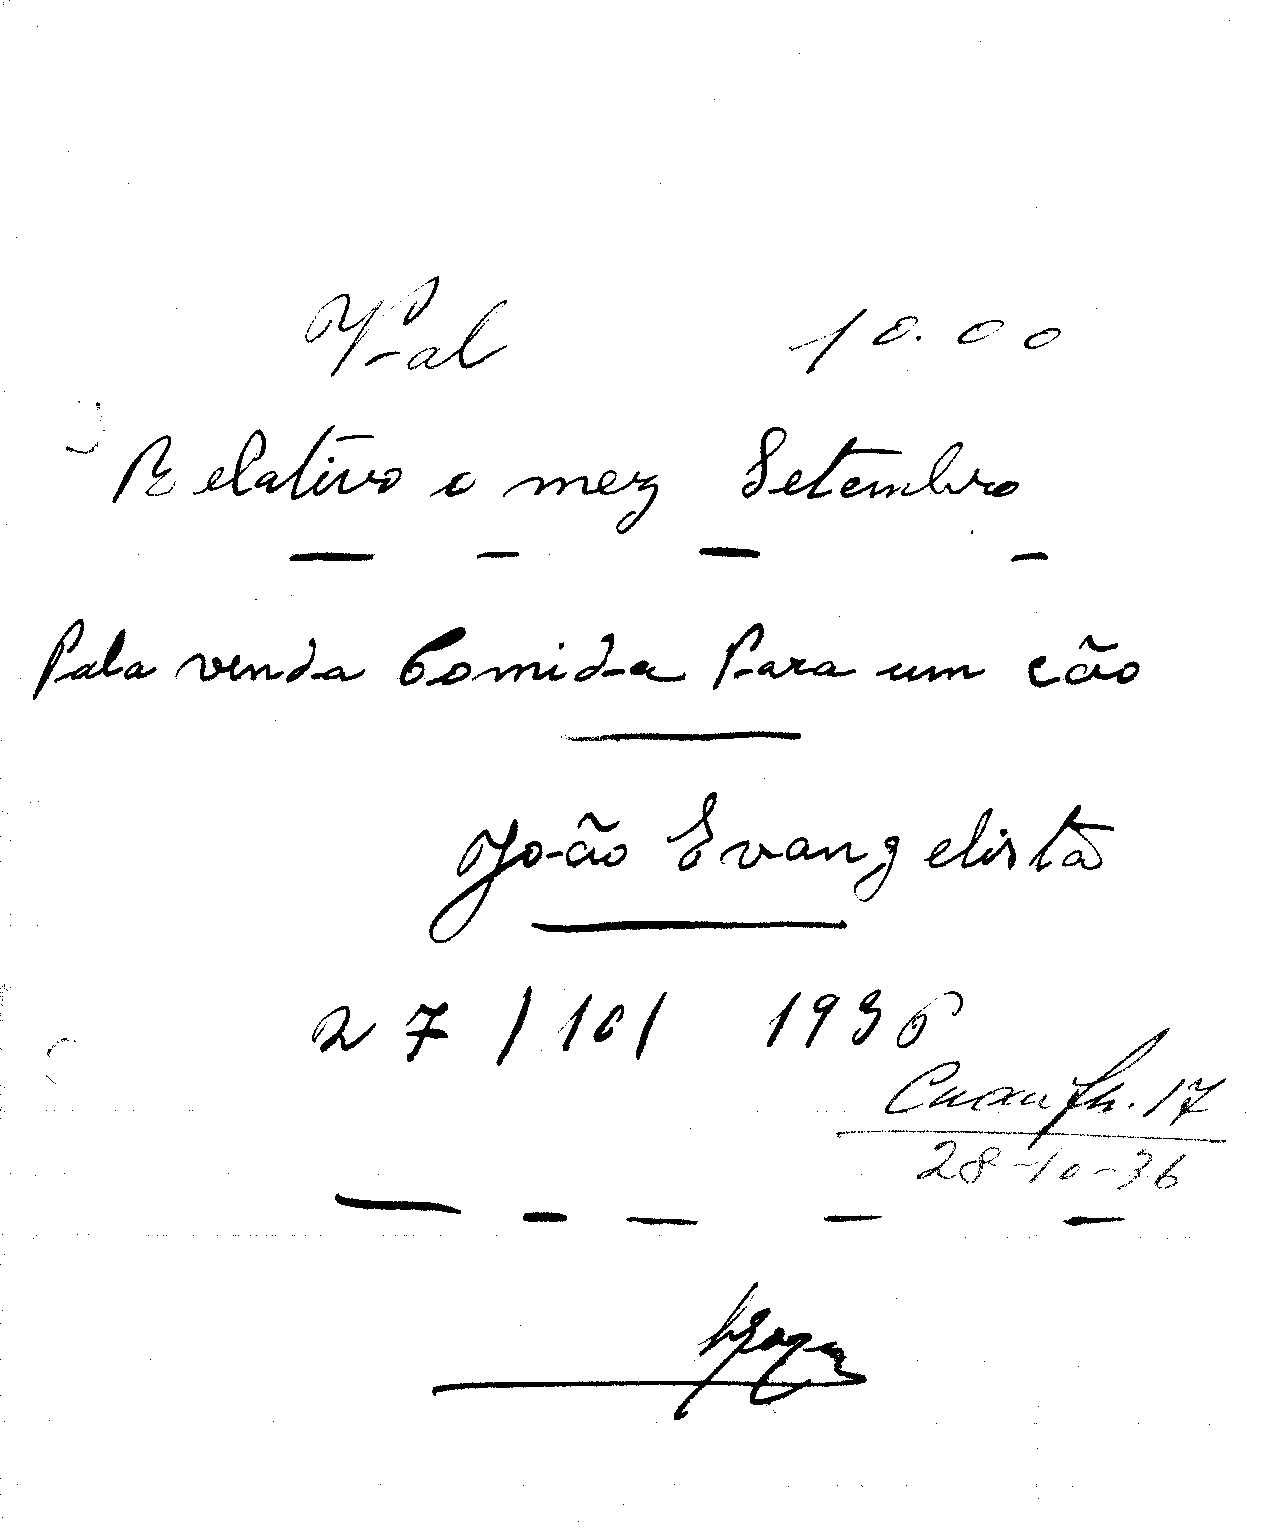 Val 10.00
Relativo o mez Setembro
Pala venda Comida Para um cão
João Evangelista
27/10/ 1936
fh. 17
28-10-36